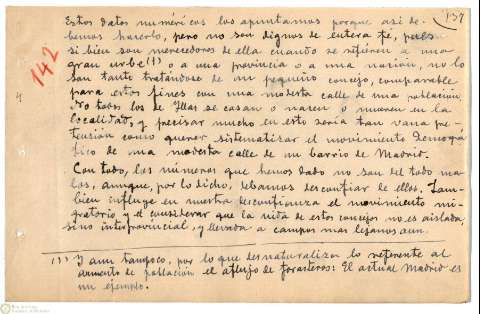 137
142
Estos datos numéricos los apuntamos porque así de-
bemos hacerlo, pero no son dignos de entera fe, pues
si bien son merecedores de ella cuando se refieren a una
gran urbe (1) o a una provincia o a una nación, no lo
son tanto tratándose de un pequeño concejo, comparable
para estos fines con una modesta calle de una población.
No todos los de Illas se casan o nacen o mueren en la
localidad, y precisar mucho en esto sería tan vana pre-
tensión como querer sistematizar el movimiento demográ-
fico de una modesta calle de un barrio de Madrid.
Con todo, los números que hemos dado no son del todo ma-
los, aunque, por lo dicho, debamos desconfiar de ellos. Tam-
bien influye en nuestra desconfianza el movimiento mi-
gratorio y el considerar que la vida de estos concejos no es aislada,
sino interprovincial, y llevada a campos mas lejanos aun.
(1) Y aun tampoco, por lo que desnaturaliza lo referente al
aumento de población el aflujo de forasteros: El actual Madrid es
un ejemplo.